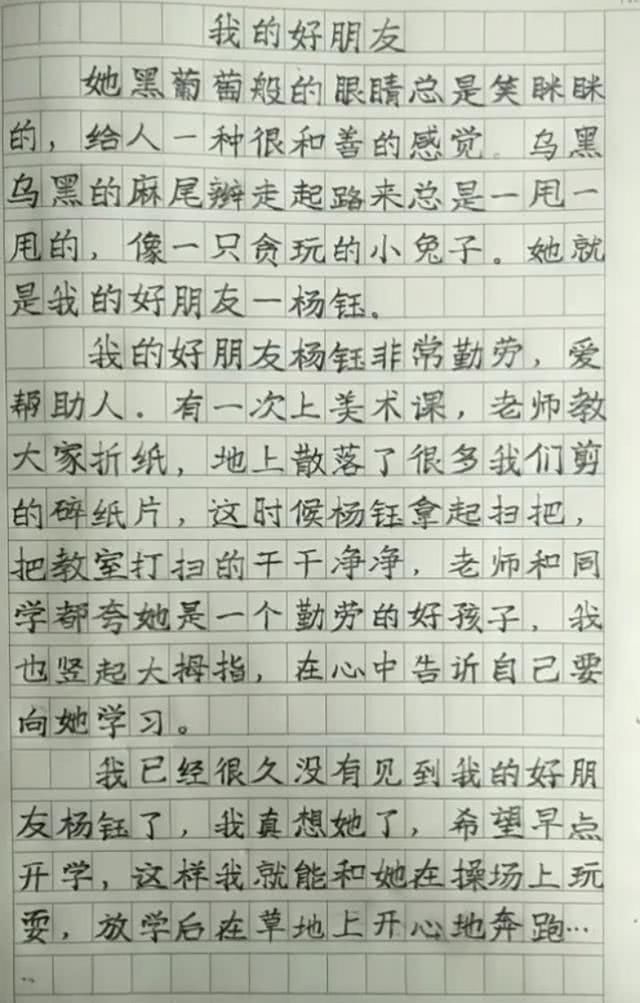 我的好朋友
她黑葡萄般的眼睛总是笑眯眯
的，给人一种很和善的感觉。乌黑
乌黑的麻尾辫走起路来总是一甩一
甩的，像一只贪玩的小兔子。她就
是我的好朋友一杨钰。
我的好朋友杨钰非常勤劳，爱
帮助人。有一次上美术课，老师教
大家折纸，地上散落了很多我们剪
的碎纸片，这时候杨钰拿起扫把，
把教室打扫的干干净净，老师和同
学都夸她是一个勤劳的好孩子，我
也竖起大拇指，在心中告诉自己要
向她学习。
我已经很久没有见到我的好朋
友杨钰了，我真想她了，希望早点
开学，这样我就能和她在操场上玩
耍，放学后在草地上开心地奔跑…
…